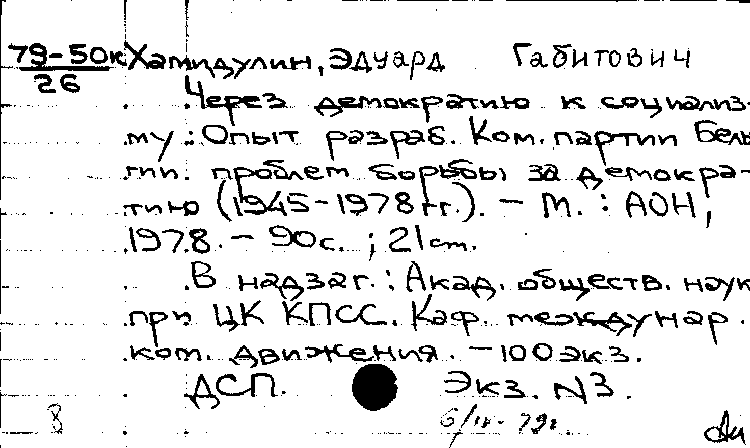 79-50к Хамидулин, Эдуард Габитович
26
Через демократию к социализ-
му : Опыт разраб. Ком. партии Бель
гии. проблем борьбы за демокра-
тию (1945-1978 гг.). - М. : АОН,
1978. - 90 с. ; 21 ст.
В надзаг. : Акад. обществ. наук
при ЦК КПСС. Каф. междунар.
ком. движения. - 100 экз.
ДСП. Экз. N3.
8 6/IV-79г.